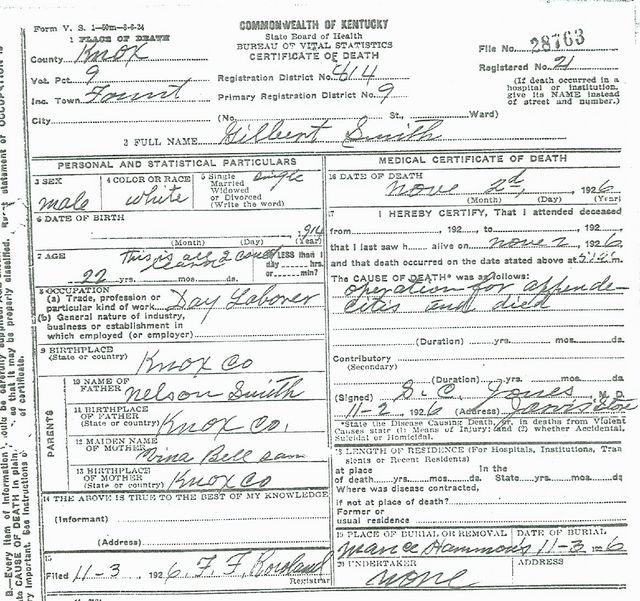 Form V. S. 1-50m-8-6-24
COMMONWEALTH OF KENTUCKY
State Board of Health
BUREAU OF VITAL STATISTICS
CERTIFICATE OF DEATH
1 PLACE OF DEATH
County Knox
File No. 28763
Vot. Pct. 9
Registration District No. 614
Registered No. 21
Inc. Town Fount
Primary Registration District No. 9
(If death occurred in a hospital or institution, give its NAME instead of street and number.)
City (No. St., Ward)
2 FULL NAME Gilbert Smith
PERSONAL AND STATISTICAL PARTICULARS
3 SEX
male
4 COLOR OR RACE
white
5 Single
Married
Widowed
or Divorced
(Write the word)
single
6 DATE OF BIRTH
914
(Month) (Day) (Year)
7 AGE
This is all I could
learn
22 yrs. mos. ds.
LESS than 1
day hrs.
or min?
8 OCCUPATION
(a) Trade, profession or
particular kind of work Day Laborer
(b) General nature of industry,
business or establishment in
which employed (or employer)
9 BIRTHPLACE
(State or country) Knox Co
PARENTS
10 NAME OF
FATHER Nelson Smith
11 BIRTHPLACE
OF FATHER
(State or country) Knox Co.
12 MAIDEN NAME
OF MOTHER Bell
13 BIRTHPLACE
OF MOTHER
(State or country) Knox Co
14 THE ABOVE IS TRUE TO THE BEST OF MY KNOWLEDGE
(Informant)
(Address)
15
Filed 11-3 1926 F. F. Registrar
MEDICAL CERTIFICATE OF DEATH
16 DATE OF DEATH
Nove 2d, 1926
(Month) (Day) (Year)
17 I HEREBY CERTIFY, That I attended deceased
from , 192 to , 192
that I last saw h alive on Nove 2, 1926
and that death occurred on the date stated above at m.
The CAUSE OF DEATH* was as follows:
operation for appende-
cites and died
(Duration) yrs. mos. ds.
Contributory
(Secondary)
(Duration) yrs. mos. ds.
(Signed) S. C. Jones M. D.
11-2 1926 (Address)
*State the Disease Causing Death, or, in deaths from Violent
Causes state (1) Means of Injury; and (2) whether Accidental,
Suicidal or Homicidal.
18 LENGTH OF RESIDENCE (For Hospitals, Institutions, Tran
sients or Recent Residents)
at place In the
of death yrs. mos. ds. State yrs. mos. ds.
Where was disease contracted,
if not at place of death?
Former or
usual residence
19 PLACE OF BURIAL OR REMOVAL
Hammons
DATE OF BURIAL
11-3 1926
20 UNDERTAKER
none
ADDRESS